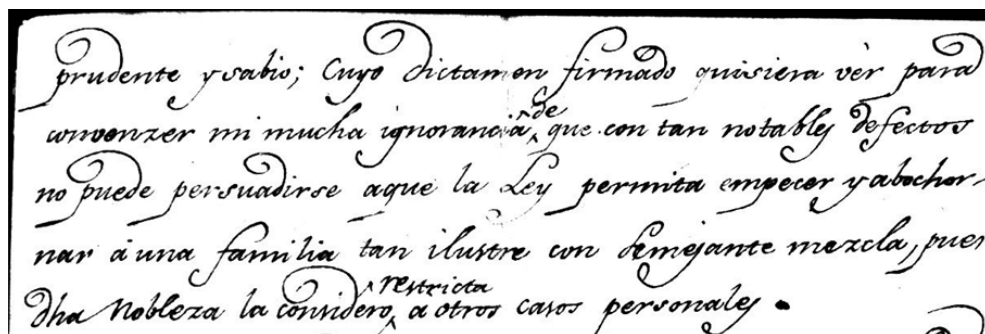 prudente y sabio; Cuyo dictamen firmado quisiera vèr para
convenzer mi mucha ignorancia de que con tan notables defectos
no puede persuadirse a que la Ley permita empecer y abochor-
nar á una familia tan ilustre con semejante mezcla, pues
dha Nobleza la considéro restricta a otros casos personales.